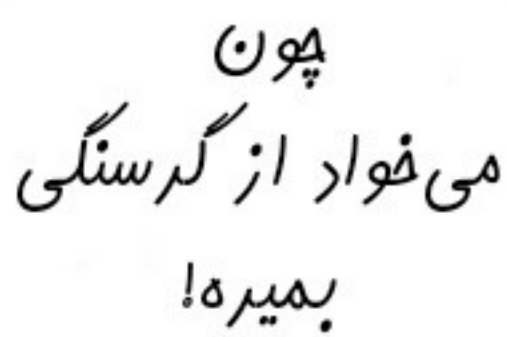 چون
می‌خواد از گرسنگی
بمیره!